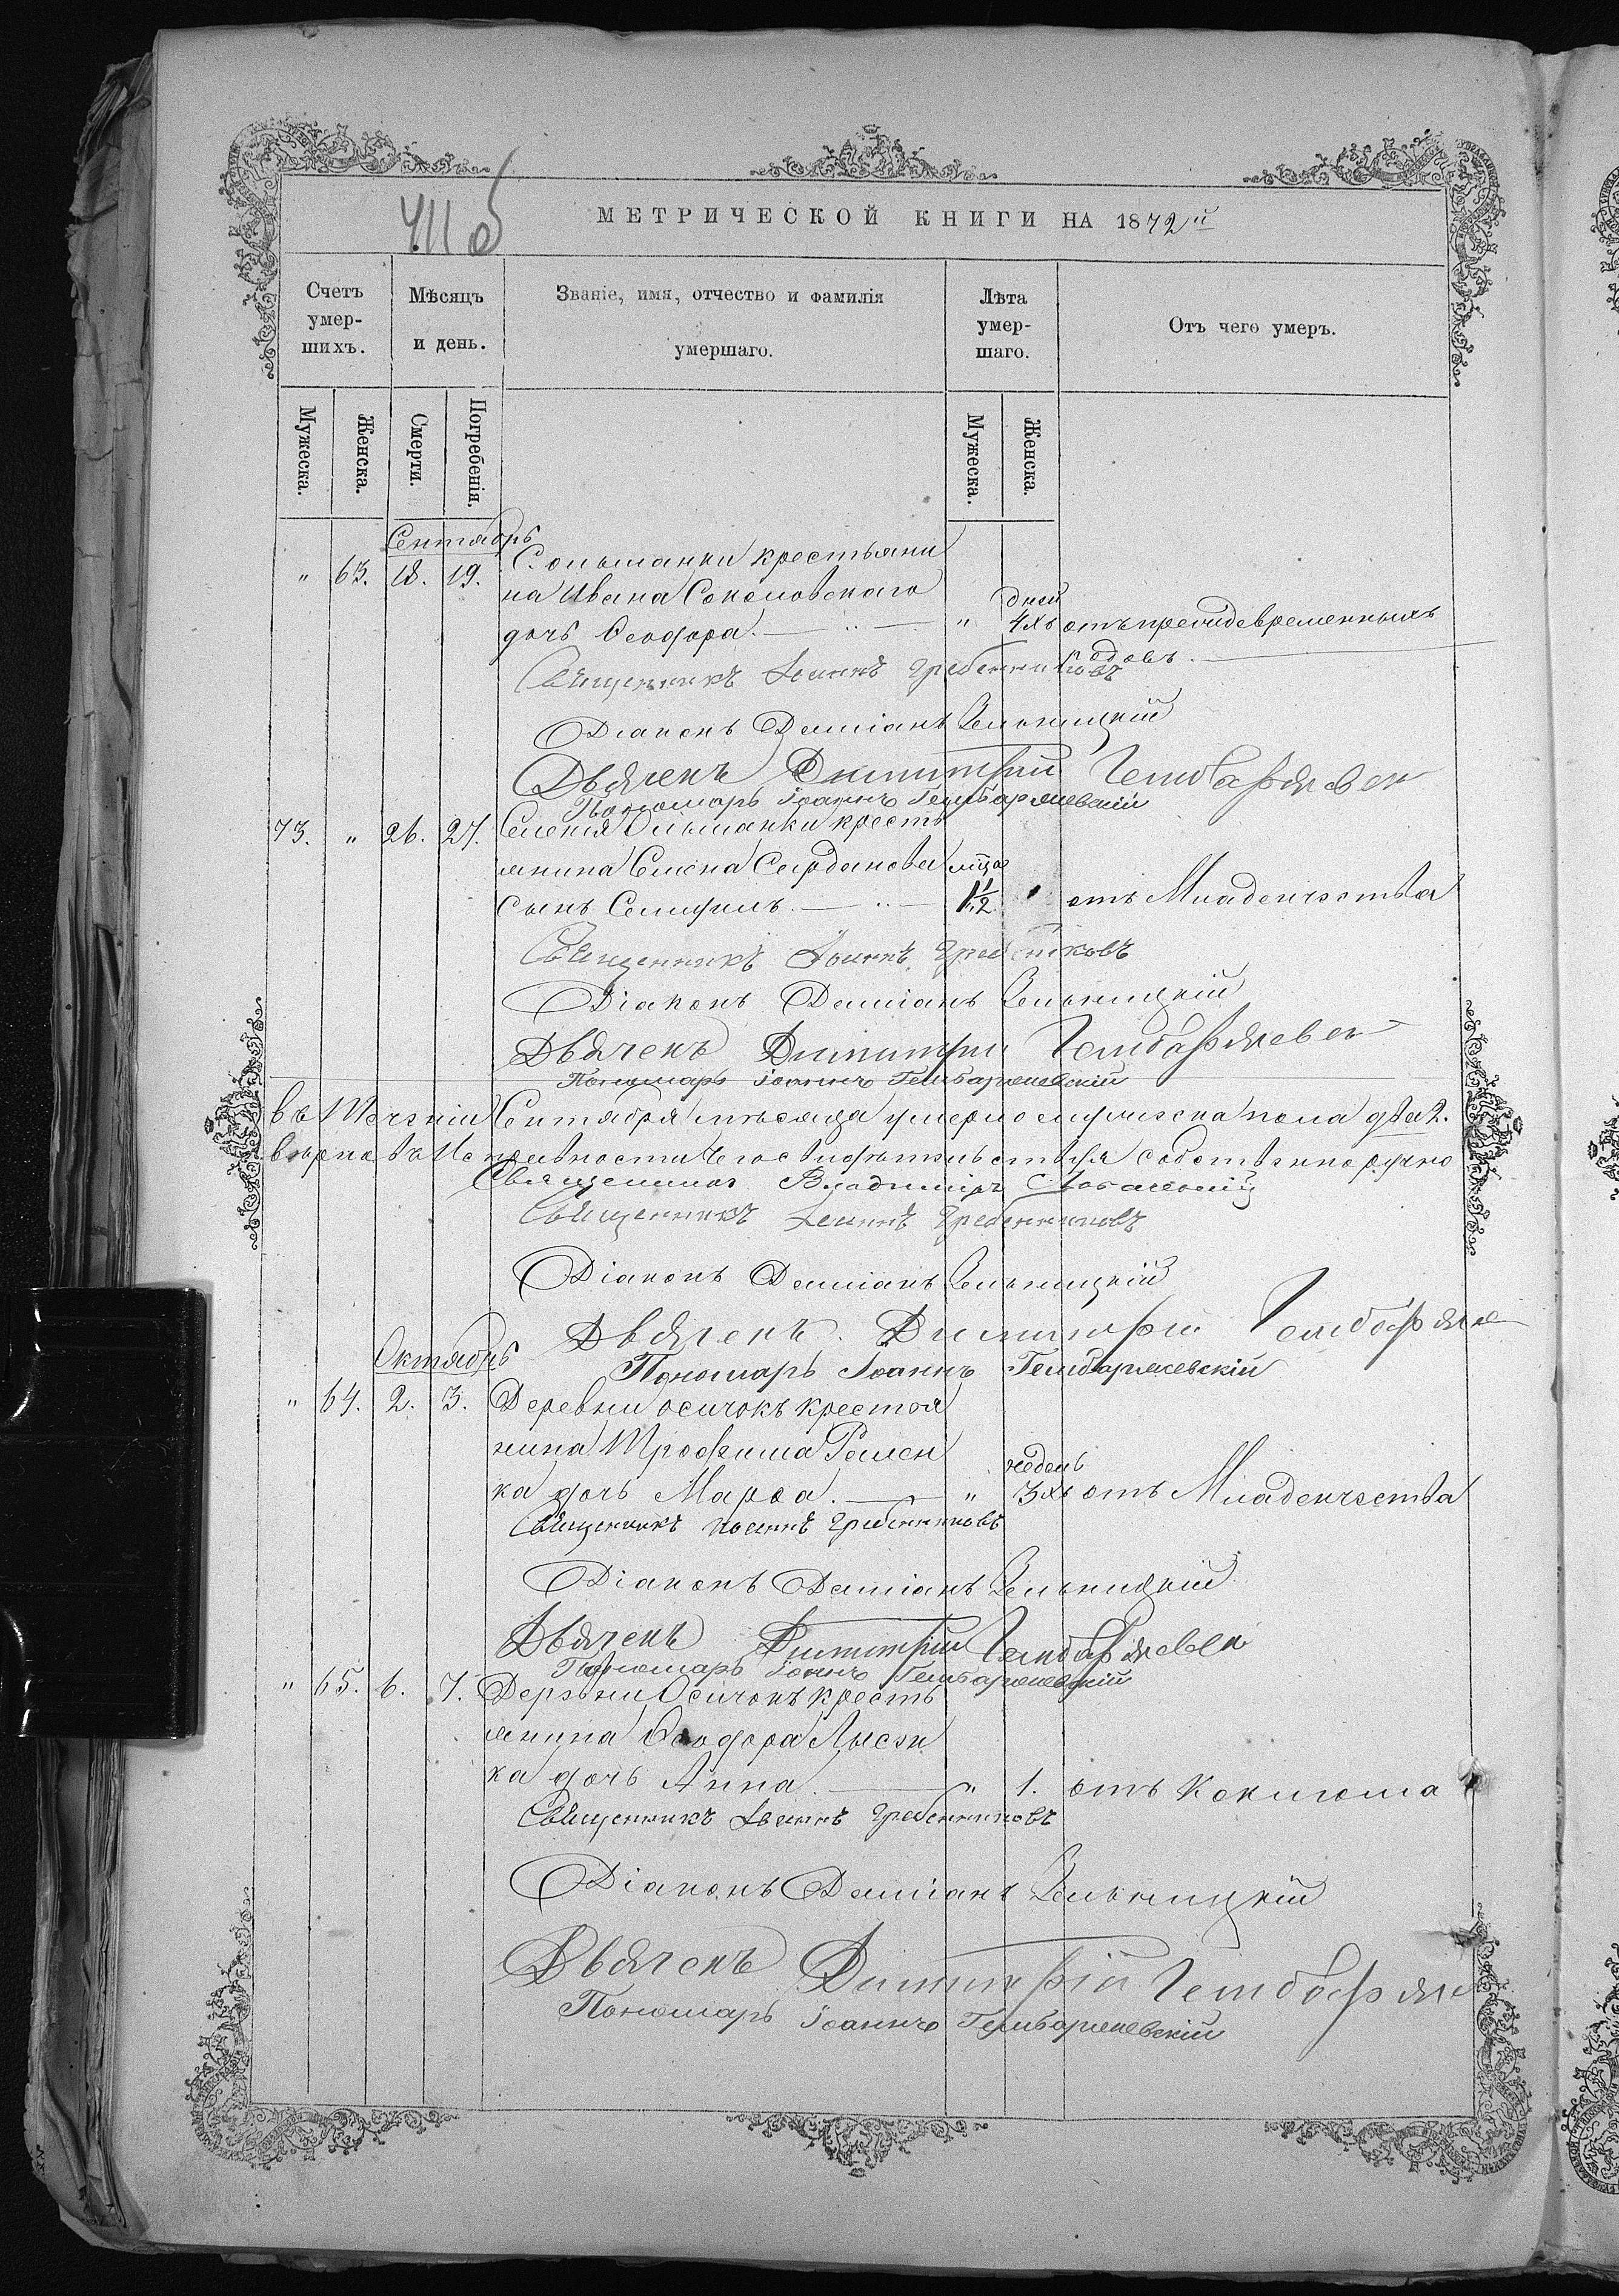 МЕТРИЧЕСКОЙ КНИГИ НА 1872й
Счетъ умер-шихъ.
Мѣсяцъ и день.
Званіе, имя, отчество и фамилія умершаго.
Лѣта умер-шаго.
Отъ чего умеръ.
Мужеска. Женска. Смерти. Погребенія. Мужеска. Женска.
Сентябрь
" 63. 18. 19. С. Ольшанки крестьяни
на Ивана Соколовскаго дней
дочь Ѳеодора. " 4хъ отъ преждевременныхъ
родовъ.
Священникъ Іоаннъ Гребенниковъ
Діаконъ Даміанъ Зельницкій
Дьячекъ Димитрій
Пономарь Іоаннъ Гембаржевскій
73. " 26. 27. Селенія Ольшанки кресть
янина Семена мца
сынъ 1 1/2 " отъ Младенчества
Священникъ Іоаннъ Гребенниковъ
Діаконъ Даміанъ Зельницкій
Дьячекъ Димитрій
Пономарь Іоаннъ Гембаржевскій
въ Теченіи Сентября мѣсяца умерло мужеска пола два 2.
собственноручно
Священникъ Владиміръ
Священникъ Іоаннъ Гребенниковъ
Діаконъ Даміанъ Зельницкій
Дьячекъ Димитрій
Пономарь Іоаннъ Гембаржевскій
Октябрь
" 64. 2. 3. Деревни Осичокъ крестья
нина Трофима недель
ка дочь Марѳа. " 3хъ отъ Младенчества
Священникъ Іоаннъ Гребенниковъ
Діаконъ Даміанъ Зельницкій
Дьячекъ Димитрій
Пономарь Іоаннъ Гембаржевскій
" 65. 6. 7. Деревни Осичокъ кресть
янина Ѳеодора Лысен
ка дочь Анна. " 1. отъ Коклюша
Священникъ Іоаннъ Гребенниковъ
Діаконъ Даміанъ Зельницкій
Дьячекъ Димитрій
Пономарь Іоаннъ Гембаржевскій